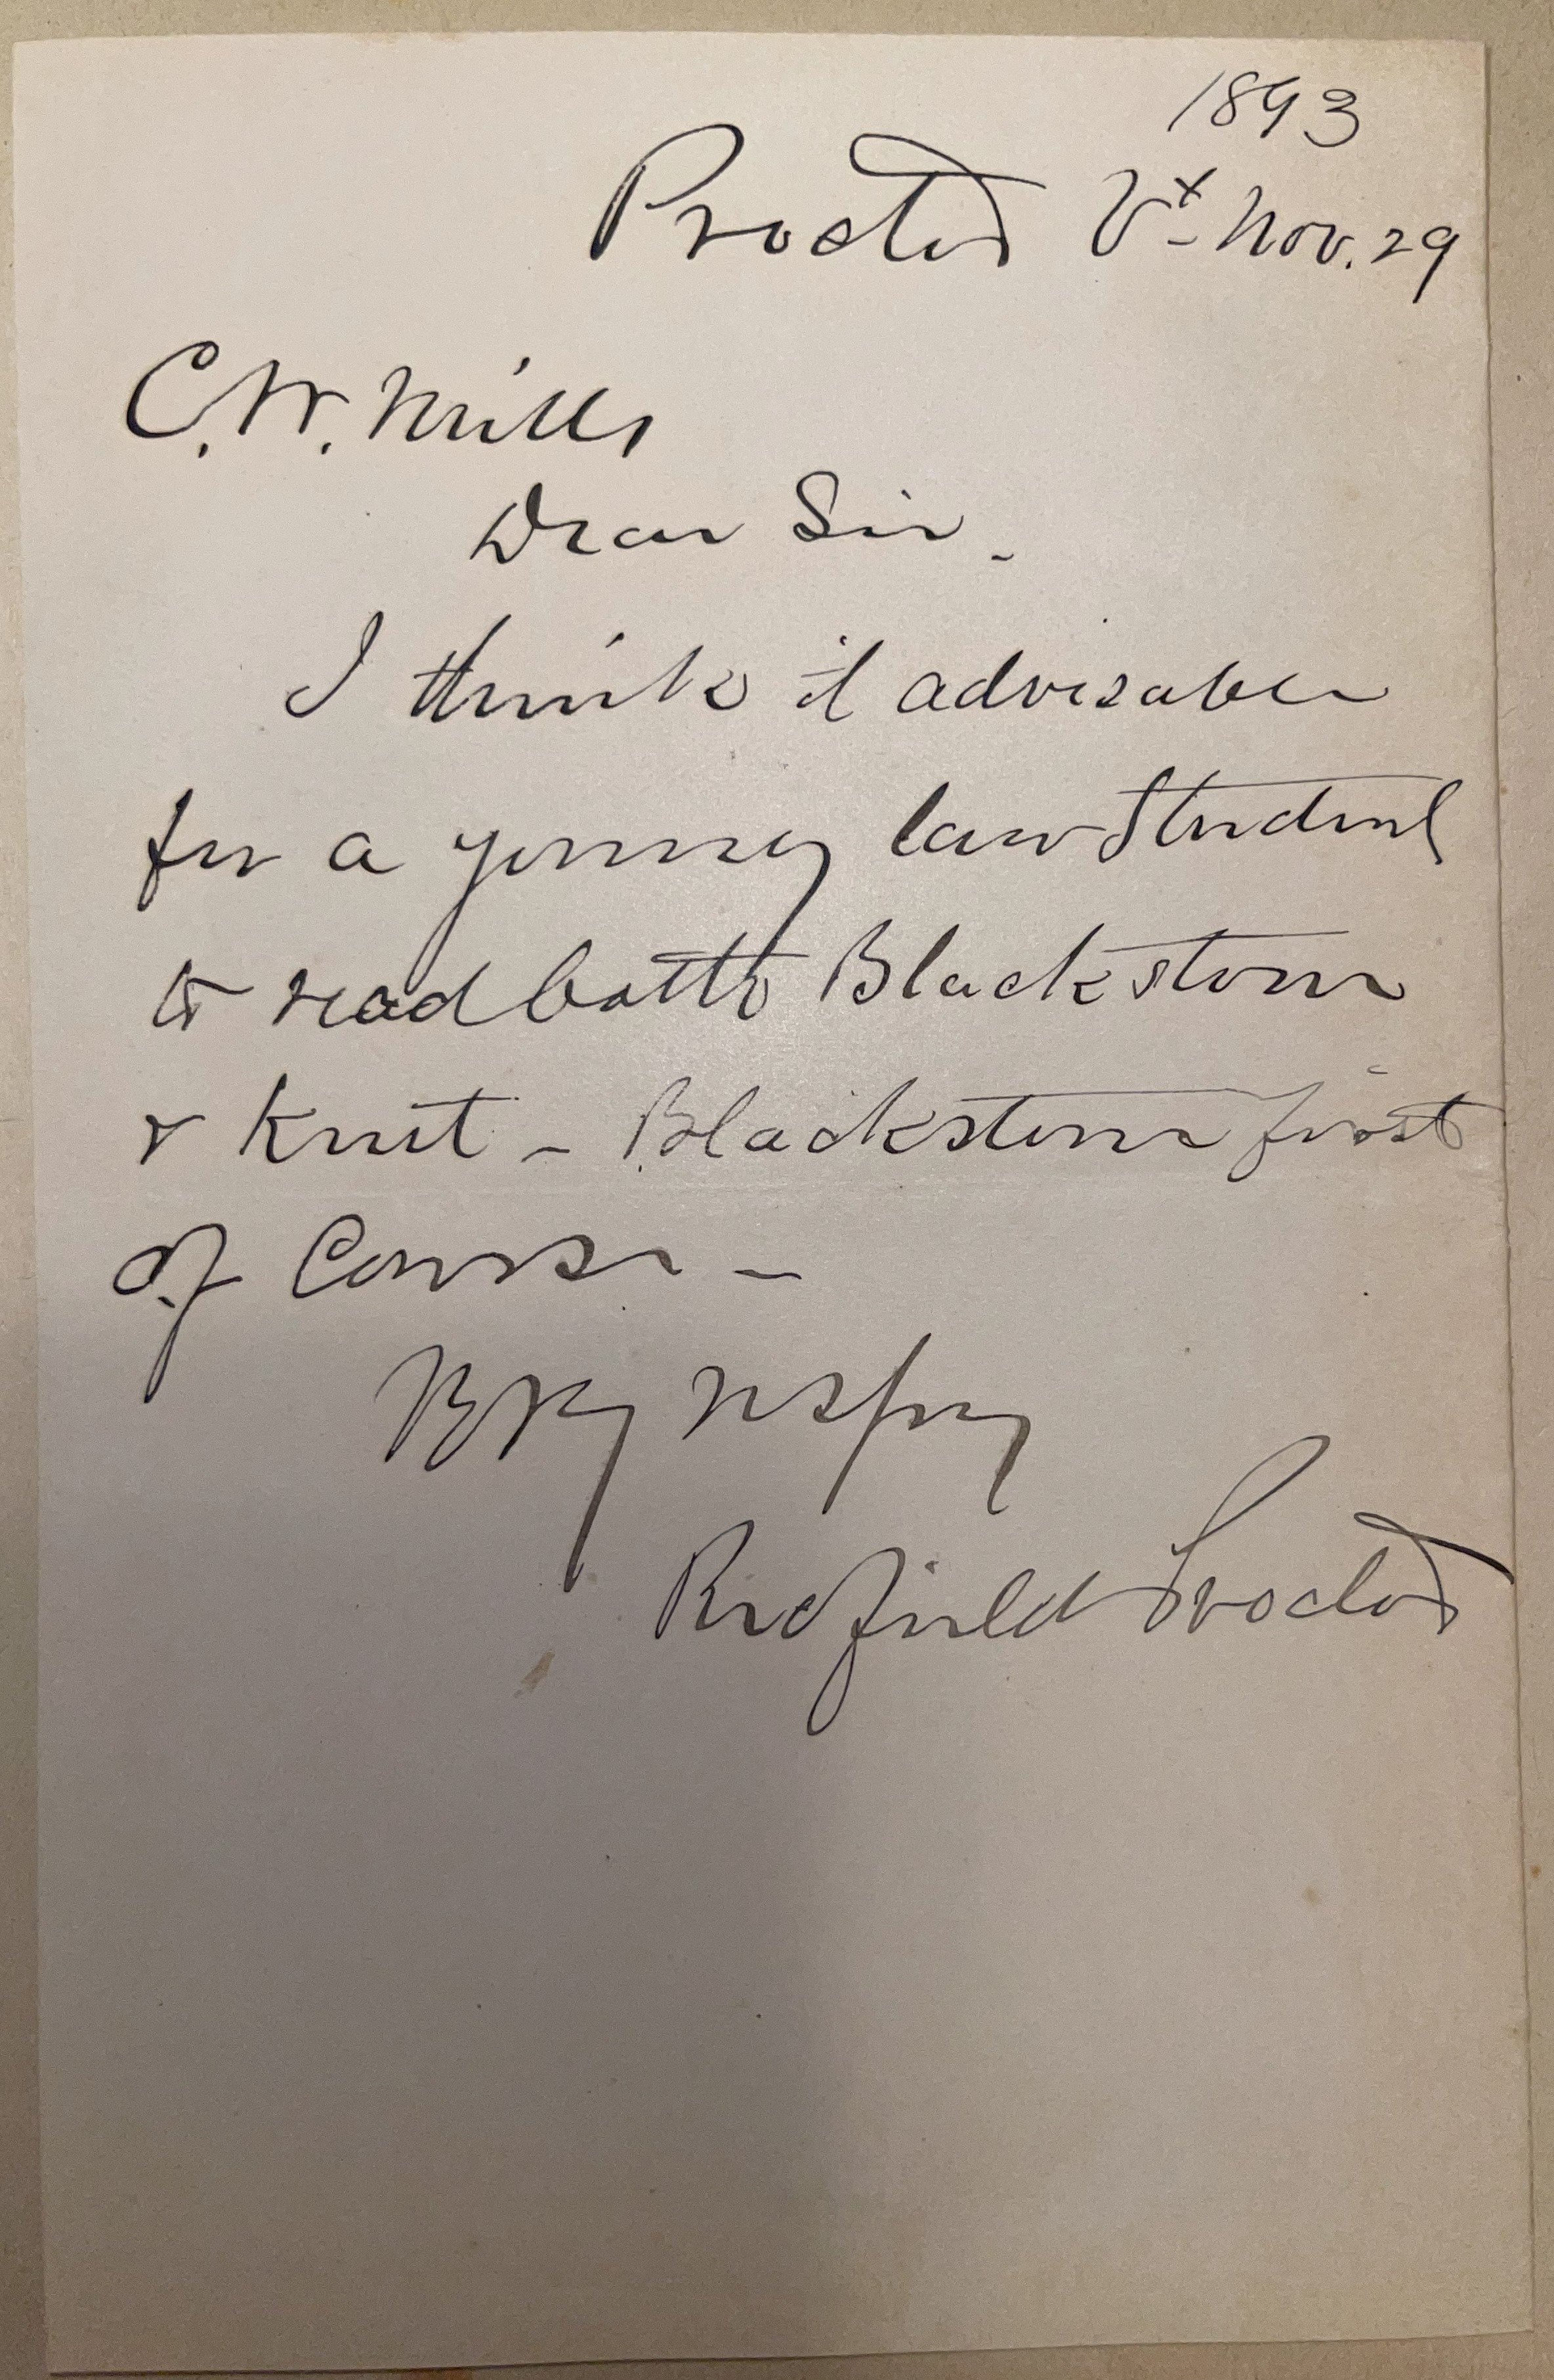 1893
Proctor Vt - Nov. 29
C. W. Mills
Dear Sir -
I think it advisable
for a young law student
to read both Blackstone
& Kent - Blackstone first
of Course -
Very respy
Redfield Proctor